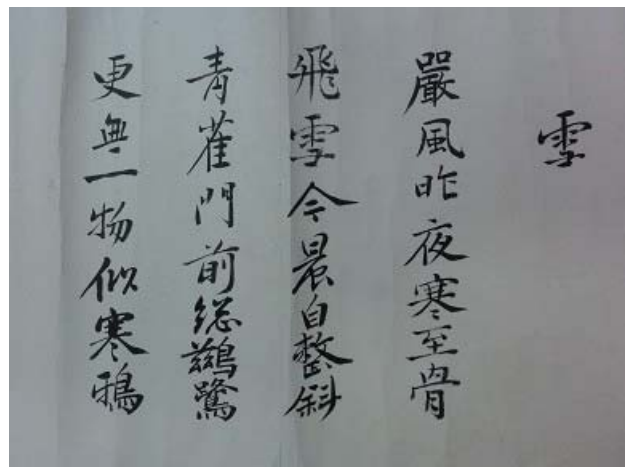 雪
嚴風昨夜寒至骨
飛雪今晨自整斜
青雀門前総鷀鷺
更無一物似寒鴉